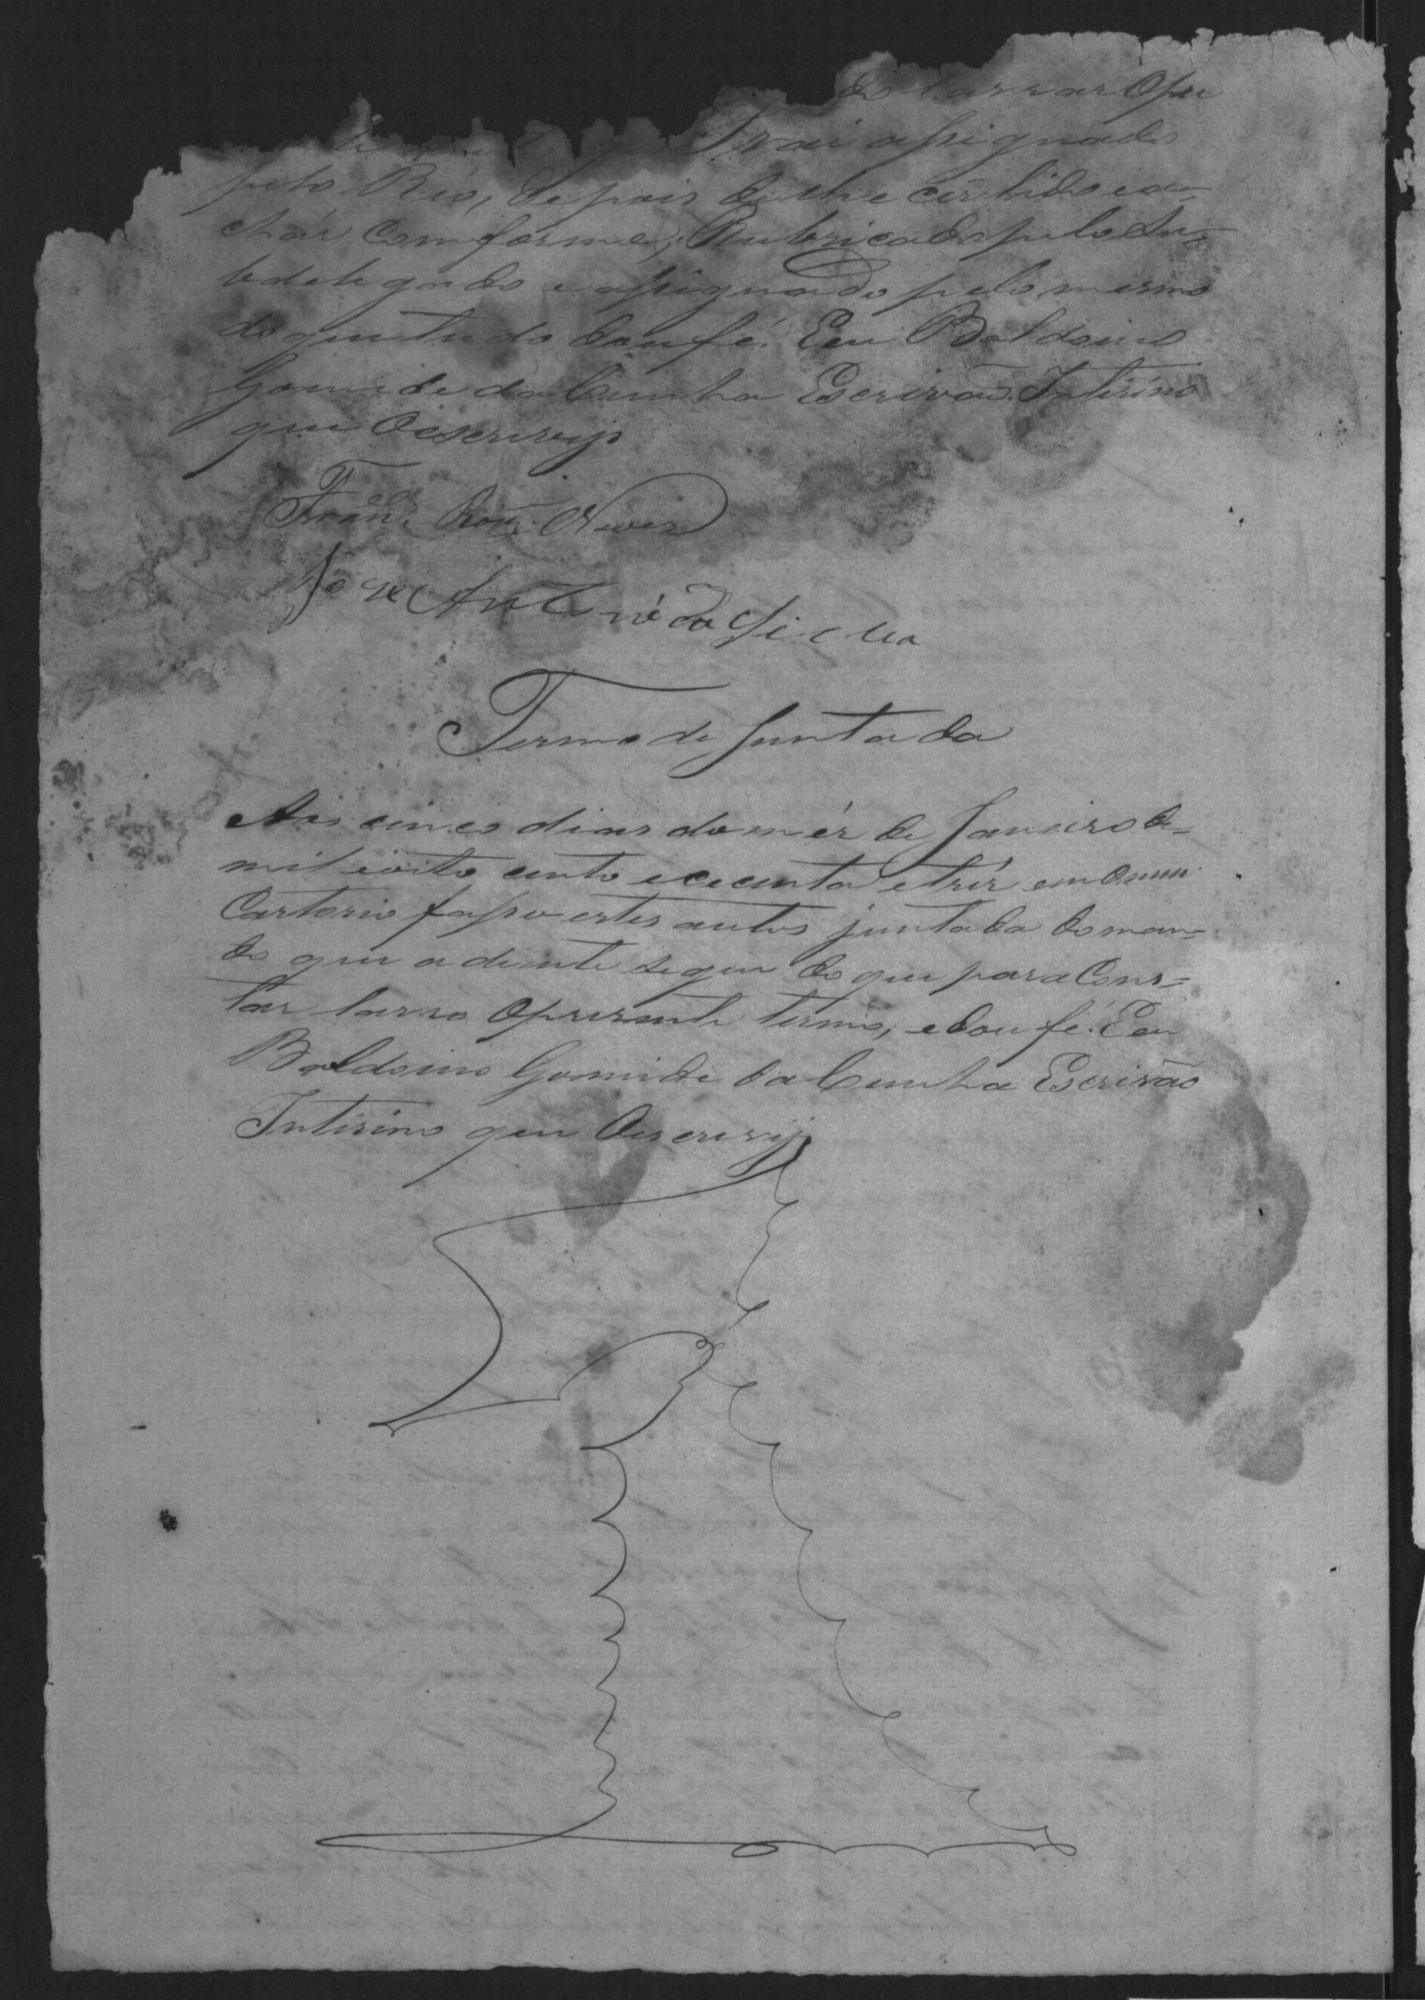 de lavrar Opre
vai assignado
pelo Réo, depois de lhe ser lido e a=
char Comforme, Rubricado pelo Su=
bdelegado e assignado pelo mesmo
do que tudo dou fé. Eeu Baldoino
Gomide da Cunha Escrivão Intirino
que Oescrevy
Fran.co Roiz Neves
Jose Antonio da Silva
Termo de Juntada
Aos cinco dias do mêz de Janeiro de=
mil eoito cento e cecenta etrêz em Omeu
Cartorio fasso estes autos juntada do man=
do que a diente segue do que para Cons=
tar lavro Oprezente termo, edou fé. Eeu
Baldoino Gomide da Cunha Escrivão
Intirino que Oescrevy